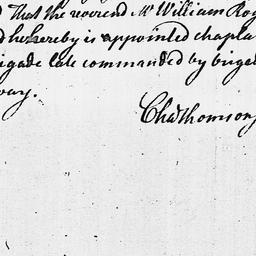 That the reverend Mr William Rog
hereby is appointed chapla
rigade late commanded by brigad
way.
Cha Thomson